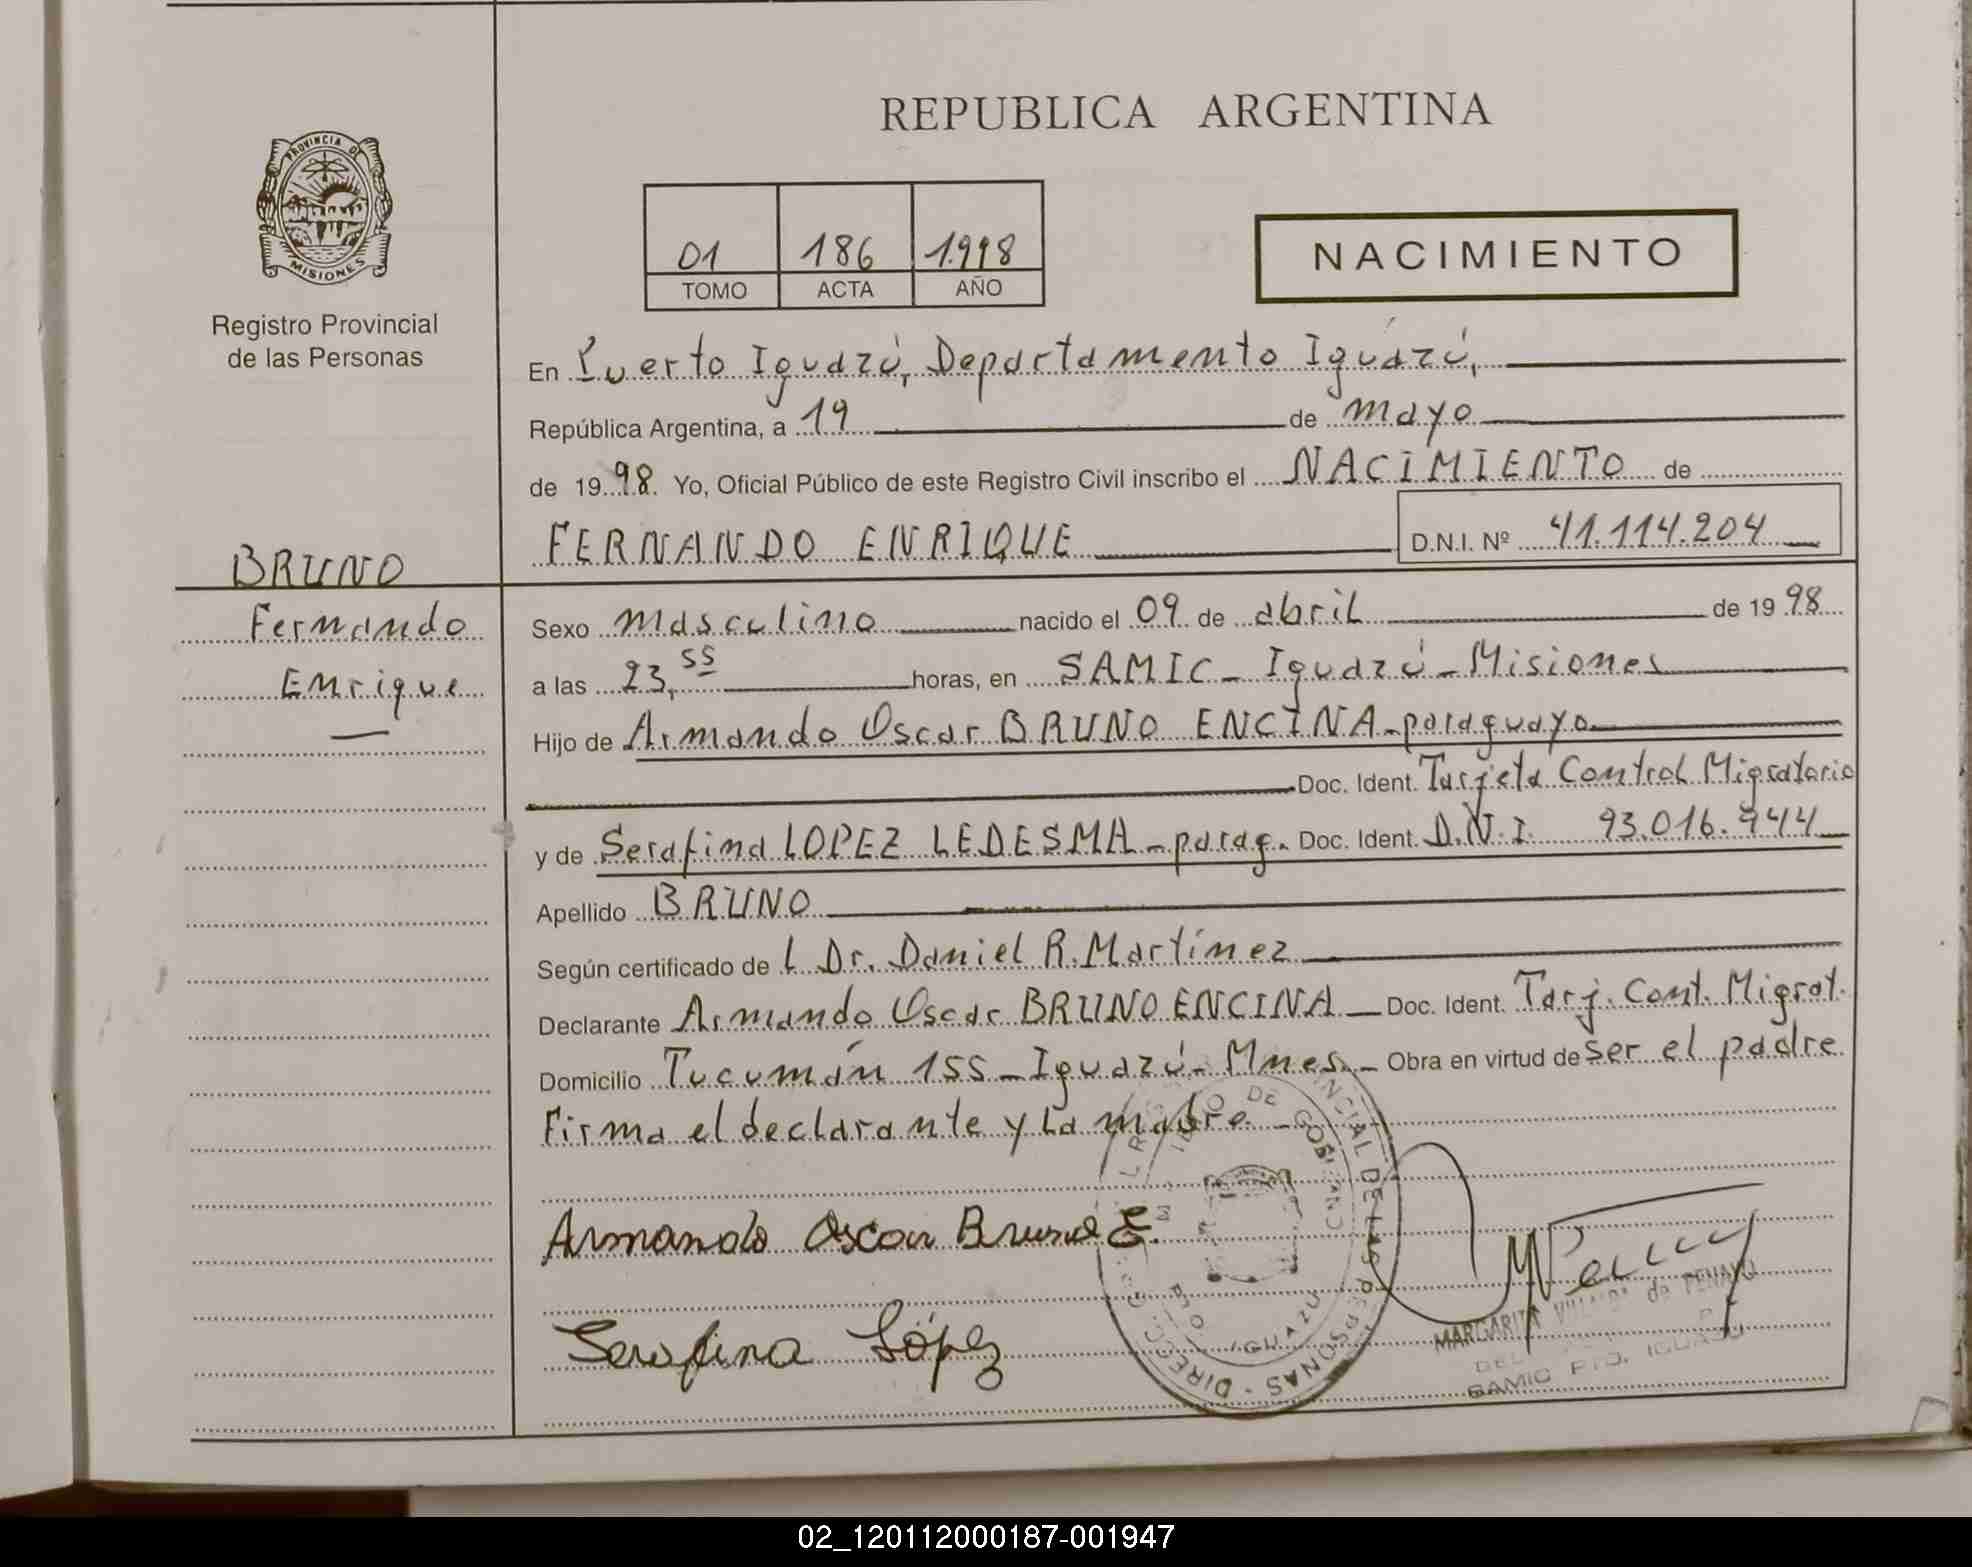 REPUBLICA ARGENTINA
PROVINCIA DE
MISIONES
Registro Provincial
de las Personas
01 186 1.998
TOMO ACTA AÑO
NACIMIENTO
En Puerto Iguazú, Departamento Iguazú,
República Argentina, a 19 de mayo
de 1998. Yo, Oficial Público de este Registro Civil inscribo el NACIMIENTO de
FERNANDO ENRIQUE D.N.I. Nº 41.114.204
BRUNO
Fernando
Enrique
Sexo masculino nacido el 09 de abril de 1998
a las 23,55 horas, en SAMIC - Iguazú - Misiones
Hijo de Armando Oscar BRUNO ENCINA - paraguayo
Doc. Ident. Tarjeta Control Migratorio
y de Serafina LOPEZ LEDESMA - parag. Doc. Ident. D.N.I. 93.016.944
Apellido BRUNO
Según certificado de l Dr. Daniel R. Martínez
Declarante Armando Oscar BRUNO ENCINA Doc. Ident. Tarj. Cont. Migrat.
Domicilio Tucumán 155 - Iguazú - Mnes. - Obra en virtud de ser el padre
Firma el declarante y la madre
Armando Oscar Bruno E.
Serafina López
DIRECC PROVINCIAL DE LAS PERSONAS
DE GOBIERNO
IGUAZU
MARGARITA VILLALBA de PENAYO
SAMIC PTO. IGUAZU
02_120112000187-001947